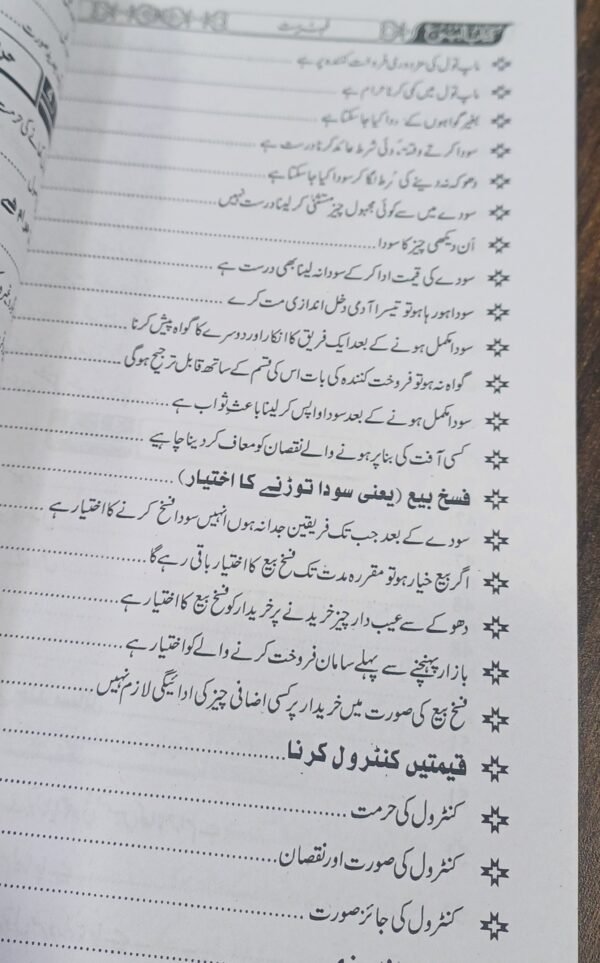 کتاب البیوع
فہرست
ماپ تول کی مزدوری فروخت کنندہ پر ہے
ماپ تول میں کمی کرنا حرام ہے
بغیر گواہوں کے سودا کیا جا سکتا ہے
سودا کرتے وقت کوئی شرط عائد کرنا درست ہے
دھوکہ نہ دینے کی شرط لگا کر سودا کیا جا سکتا ہے
سودے میں سے کوئی مجہول چیز مستثنیٰ کر لینا درست نہیں
اَن دیکھی چیز کا سودا
سودے کی قیمت ادا کر کے سودا نہ لینا بھی درست ہے
سودا ہو رہا ہو تو تیسرا آدمی دخل اندازی مت کرے
سودا مکمل ہونے کے بعد ایک فریق کا انکار اور دوسرے کا گواہ پیش کرنا
گواہ نہ ہو تو فروخت کنندہ کی بات اس کی قسم کے ساتھ قابل ترجیح ہوگی
سودا مکمل ہونے کے بعد سودا واپس کر لینا باعث ثواب ہے
کسی آفت کی بنا پر ہونے والے نقصان کو معاف کر دینا چاہیے
فسخ بیع (یعنی سودا توڑنے کا اختیار)
سودے کے بعد جب تک فریقین جدا نہ ہوں انہیں سودا فسخ کرنے کا اختیار ہے
اگر بیع خیار ہو تو مقررہ مدت تک فسخ بیع کا اختیار باقی رہے گا
دھوکے سے عیب دار چیز خریدنے پر خریدار کو فسخ بیع کا اختیار ہے
بازار پہنچنے سے پہلے سامان فروخت کرنے والے کو اختیار ہے
فسخ بیع کی صورت میں خریدار پر کسی اضافی چیز کی ادائیگی لازم نہیں
قیمتیں کنٹرول کرنا
کنٹرول کی حرمت
کنٹرول کی صورت اور نقصان
کنٹرول کی جائز صورت